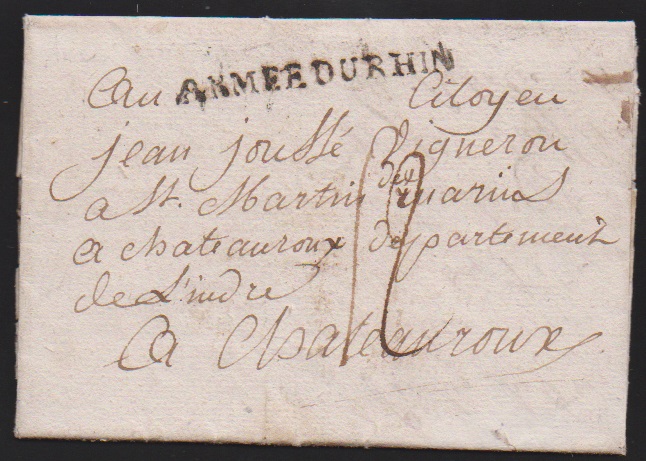 ARMEE DU RHIN
au Citoyen
jean joussé Vigneron
a St. Martin des marins
a chateauroux département
de L'indre
a Chateauroux
12